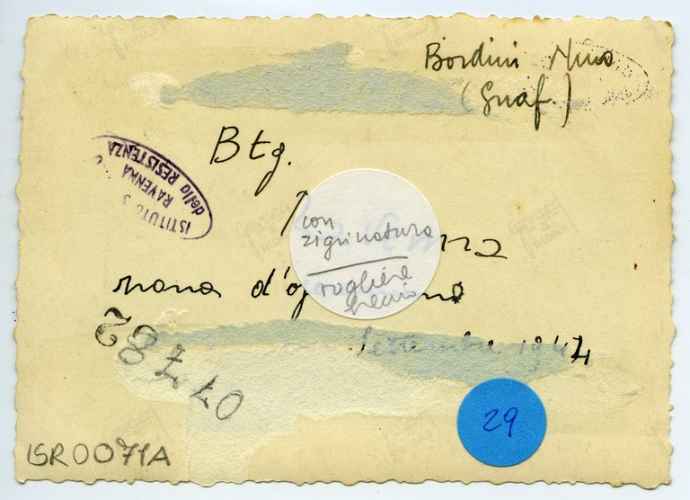 Bordini Nino
(Gnaf.)
Btg.
ISTITUTO S
RAVENNA
della RESISTENZA
con
zigrinatura
togliere
zona d'op
Settembre 1944
07782
29
ISR0071A